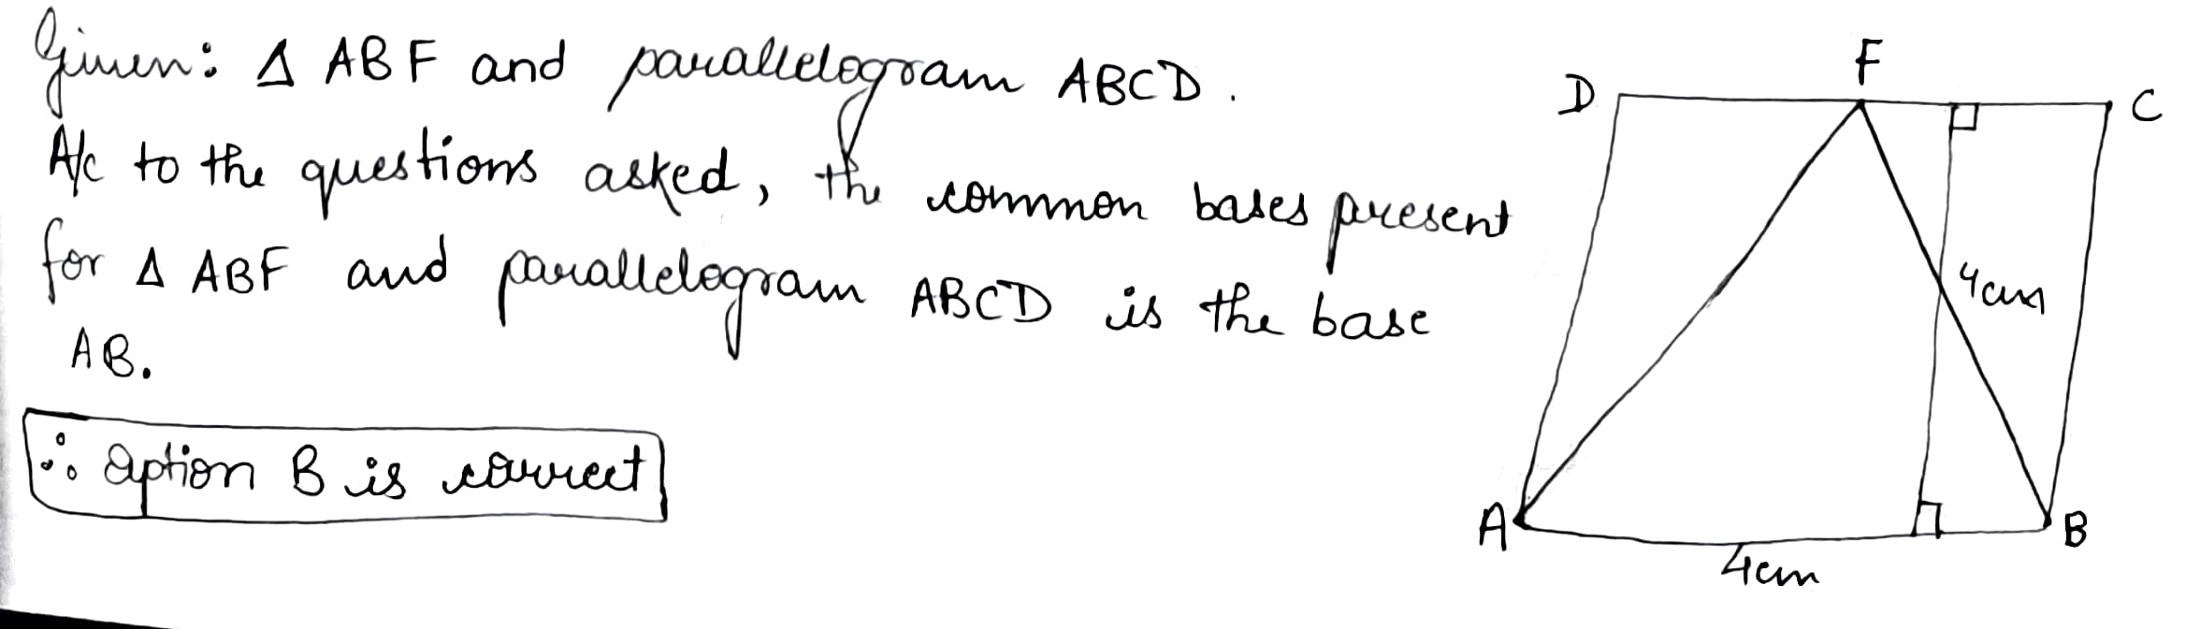 Given: Δ ABF and parallelogram ABCD.
A/c to the questions asked, the common bases present
for Δ ABF and parallelogram ABCD is the base
AB.
∴ option B is correct
F
D
C
4cm
A
B
4cm